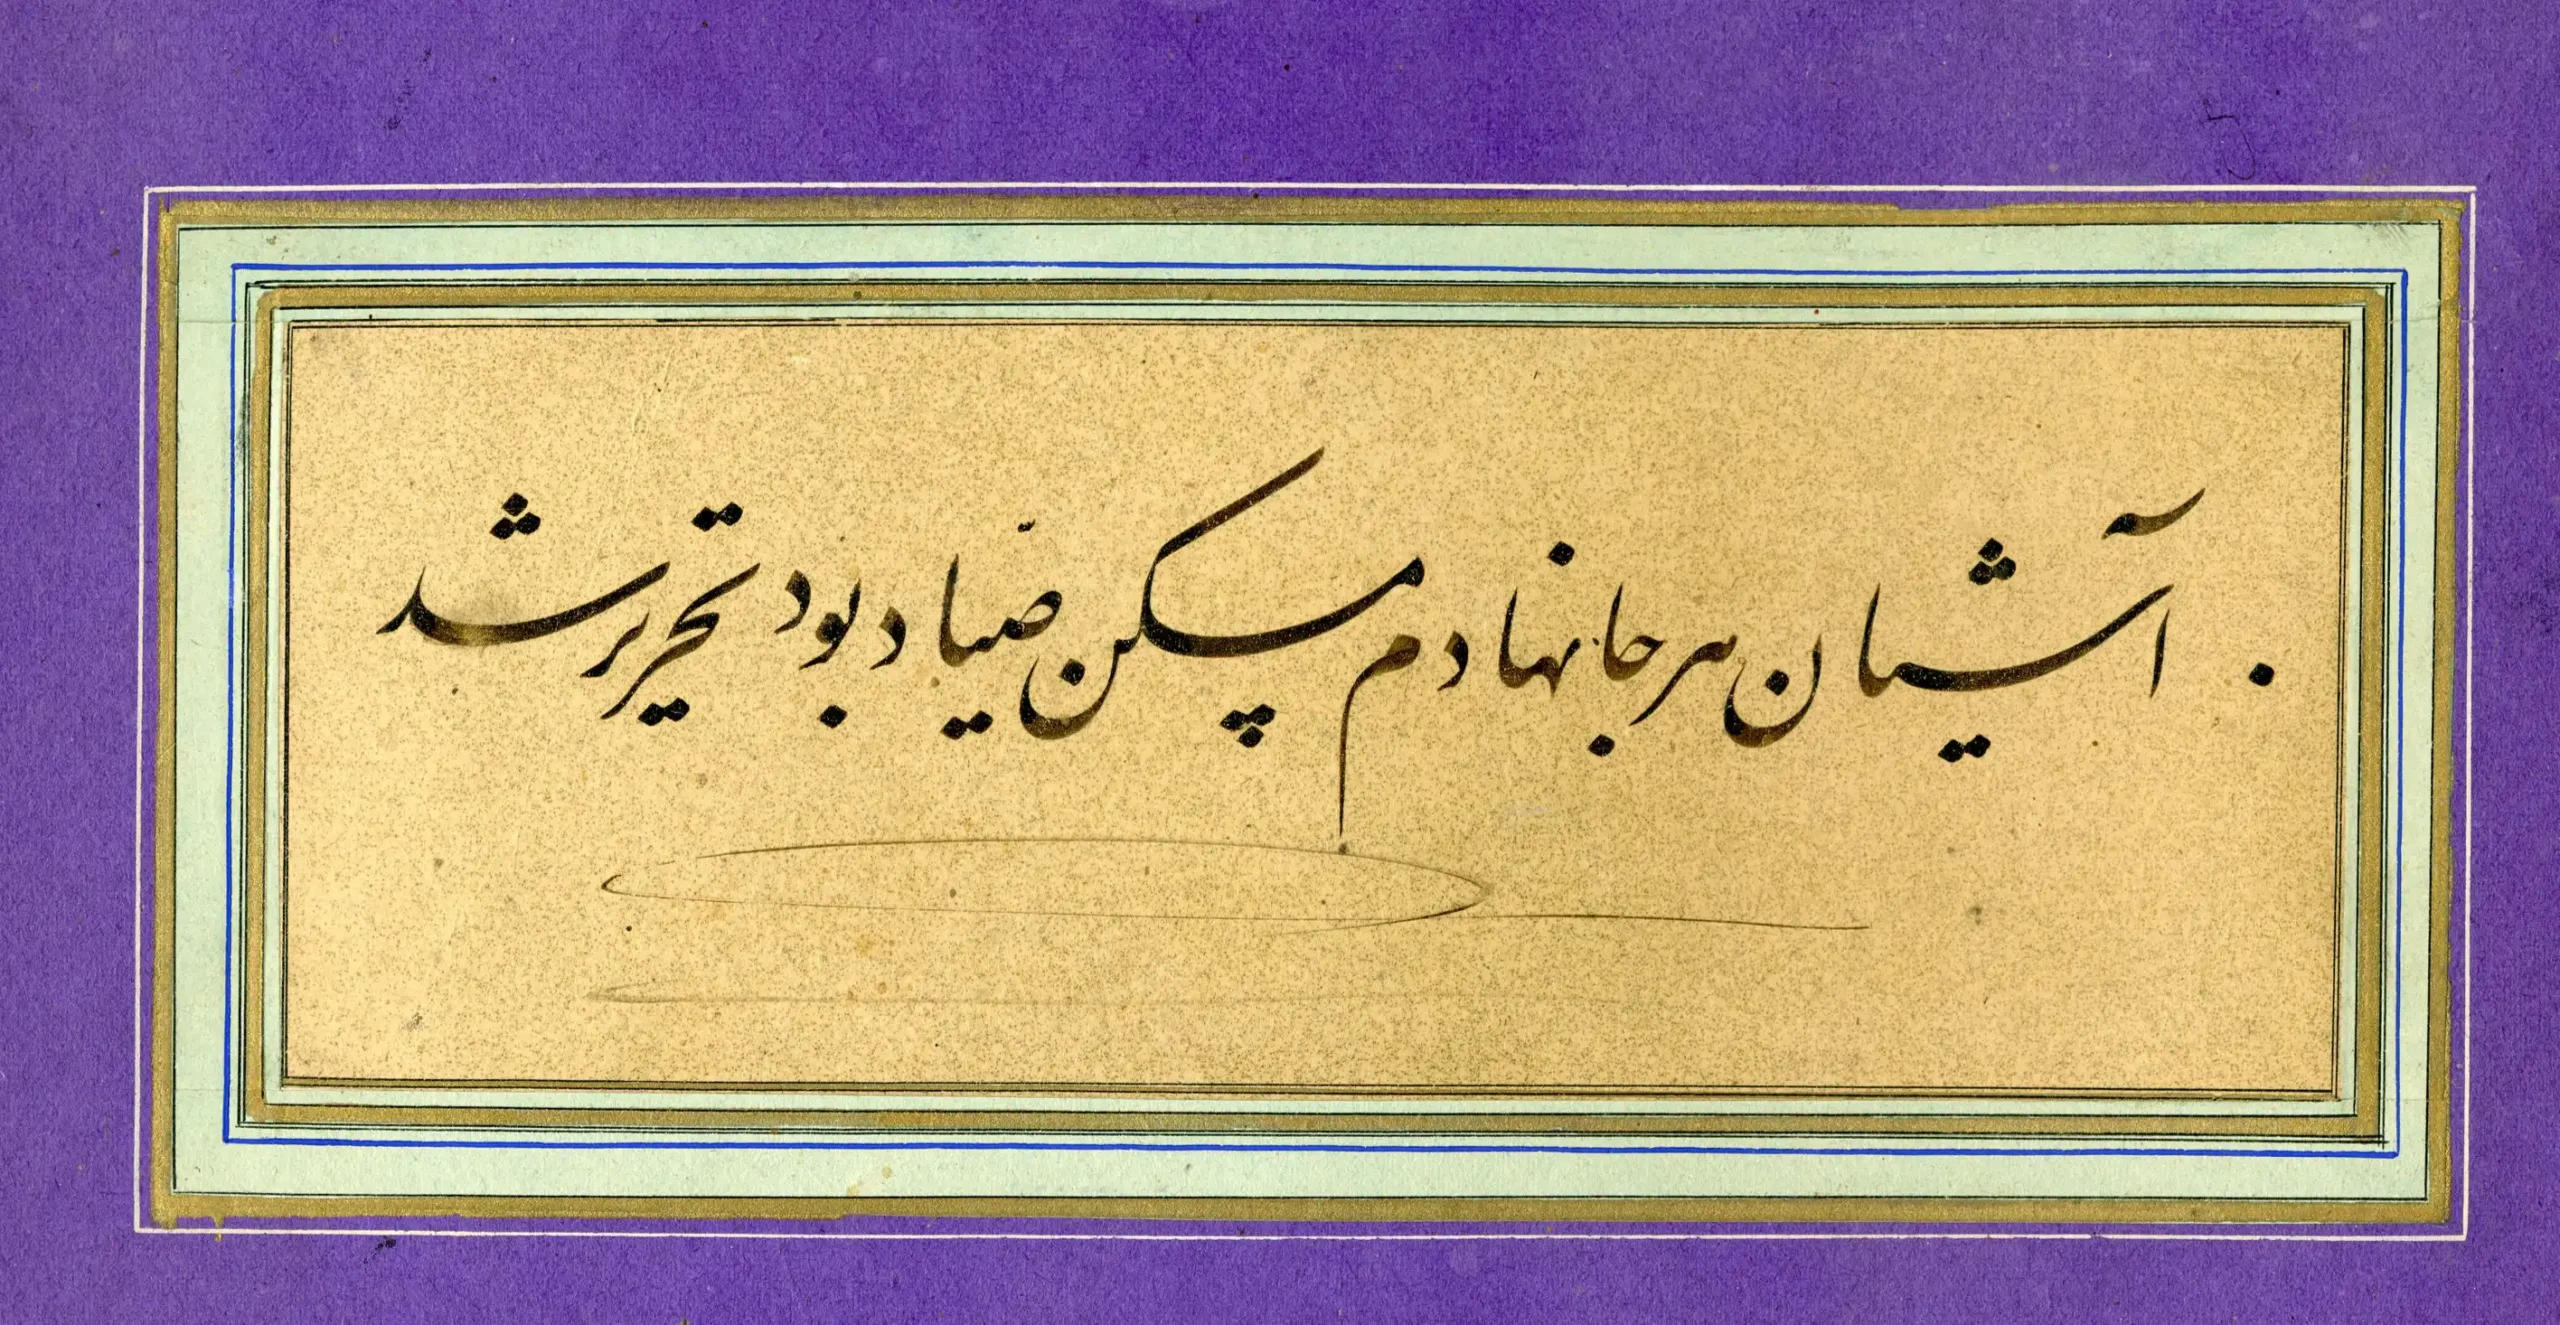 آشیان هر جا نهادم مسکن صیّاد بود تحریر شد